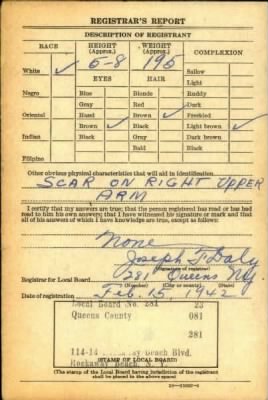 REGISTRAR'S REPORT
DESCRIPTION OF REGISTRANT
RACE HEIGHT (Approx.) WEIGHT (Approx.) COMPLEXION
White ✓ 5-8 195 Sallow
EYES HAIR Light
Negro Blue Blonde Ruddy
Gray Red Dark
Oriental Hazel Brown ✓ Freckled
Brown ✓ Black Light brown ✓
Indian Black Gray Dark brown
Bald Black
Filipino
Other obvious physical characteristics that will aid in identification
SCAR ON RIGHT UPPER
ARM
I certify that my answers are true; that the person registered has read or has had
read to him his own answers; that I have witnessed his signature or mark and that
all of his answers of which I have knowledge are true, except as follows:
None
Joseph F Daly
(Signature of registrar)
Registrar for Local Board 281 Queens N.Y.
(Number) (City or county) (State)
Date of registration Feb. 15, 1942
Local Board No. 281 23
Queens County 081
281
114-14 Beach Blvd.
Rockaway Beach, N. Y.
(STAMP OF LOCAL BOARD)
(The stamp of the Local Board having jurisdiction of the registrant
shall be placed in the above space)